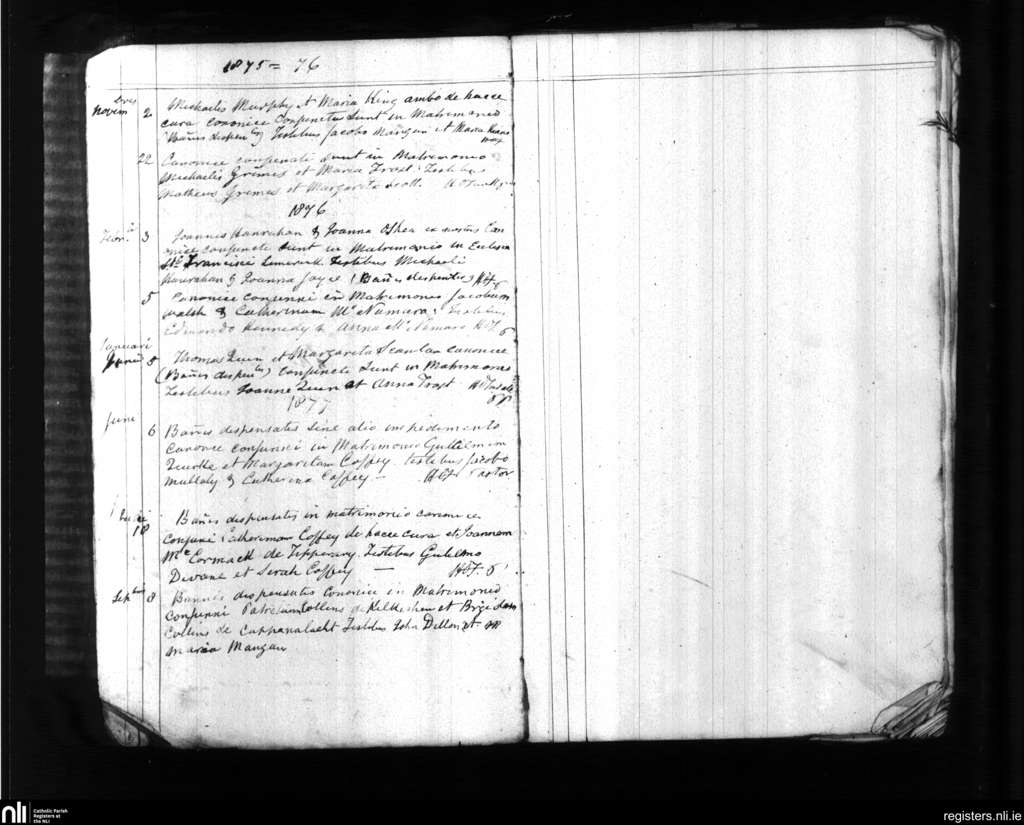 1875 = 76
Novem bres 2 Michaelis Murphy et Maria King ambo de haece
cura canonice conjuncti sunt in Matrimonio
Testibus Jacobo Mangan et Maria
22 Canonice conjuncti sunt in Matrimonio
Michaelis Grimes et Maria Frost Testibus
Matheus Grimes et Margarita Scott
1876
3 Joannis Hanrahan & Joanna OShea ex
conjuncti sunt in Matrimonio in Eclesia
Sti Francisci Limerick Testibus Michaeli
Hanrahan & Joanna Joyce
5 Canonice conjunxi in Matrimonio Jacobum
Walsh & Catherinam Mc Namara; Testibus
Edmundo Kennedy & Anna Mc Namara
Januarii
8 Thomas Quin et Margarita Scanlan canonice
conjuncti sunt in Matrimonio
Testibus Joanne Quin et Anna Frost
1877
Juni
6 Bañis dispensatis sine alio impedimento
canonice conjunxi in Matrimonio Gulielmum
et Margaritam Coffey testibus Jacobo
Mullaly & Catherina Coffey — Pastor
18 Bañis dispensatis in matrimonio canonice
conjunxi Catherinam Coffey de haece cura et Joannem
Mc Cormack de Tipperary. Testibus Gulielmo
Divane et Sarah Coffey —
Septbris 8 Bannis dispensatis Canonice in Matrimonio
conjunxi Patricium Collins de et Brigidam
Collins de Cappanalaght Testibus John Dillon et
Maria Mangan
nli
Catholic Parish
Registers at
the NLI
registers.nli.ie